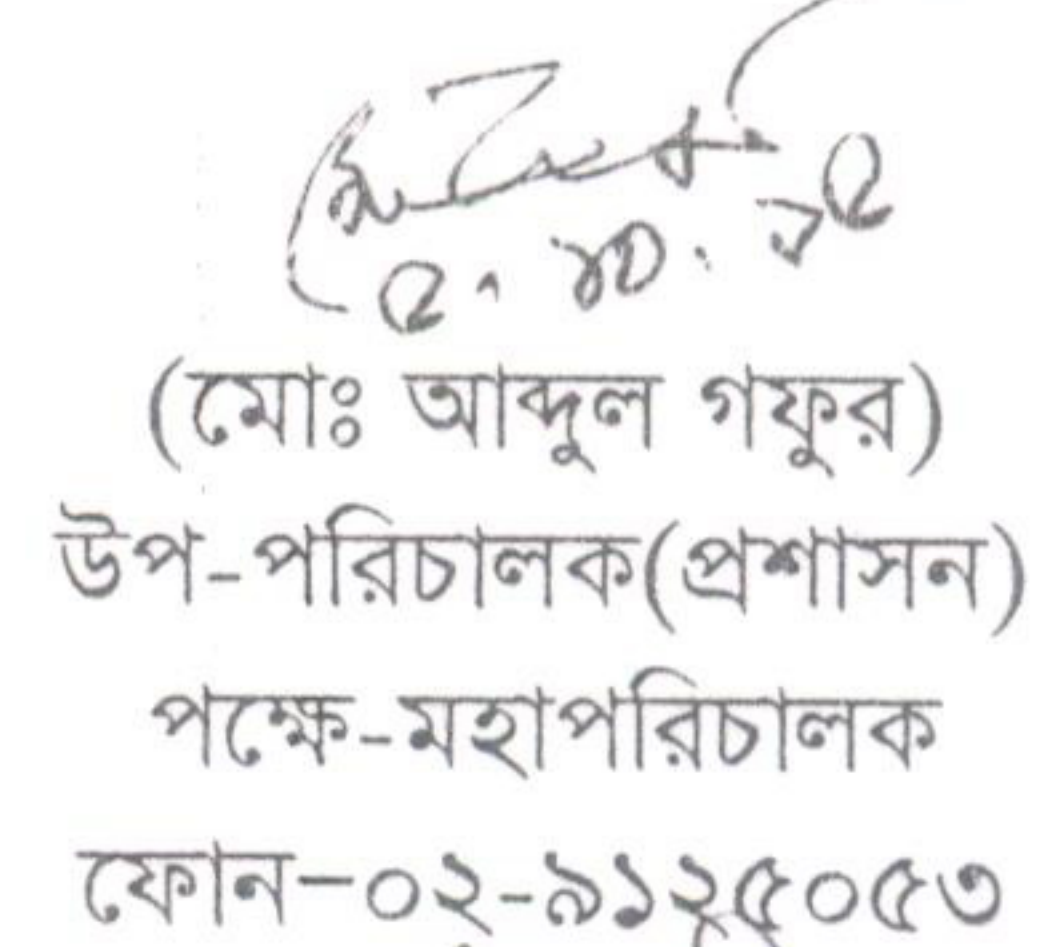 (মোঃ আব্দুল গফুর)
উপ-পরিচালক(প্রশাসন)
পক্ষে-মহাপরিচালক
ফোন-০২-৯১২৫০৫৩